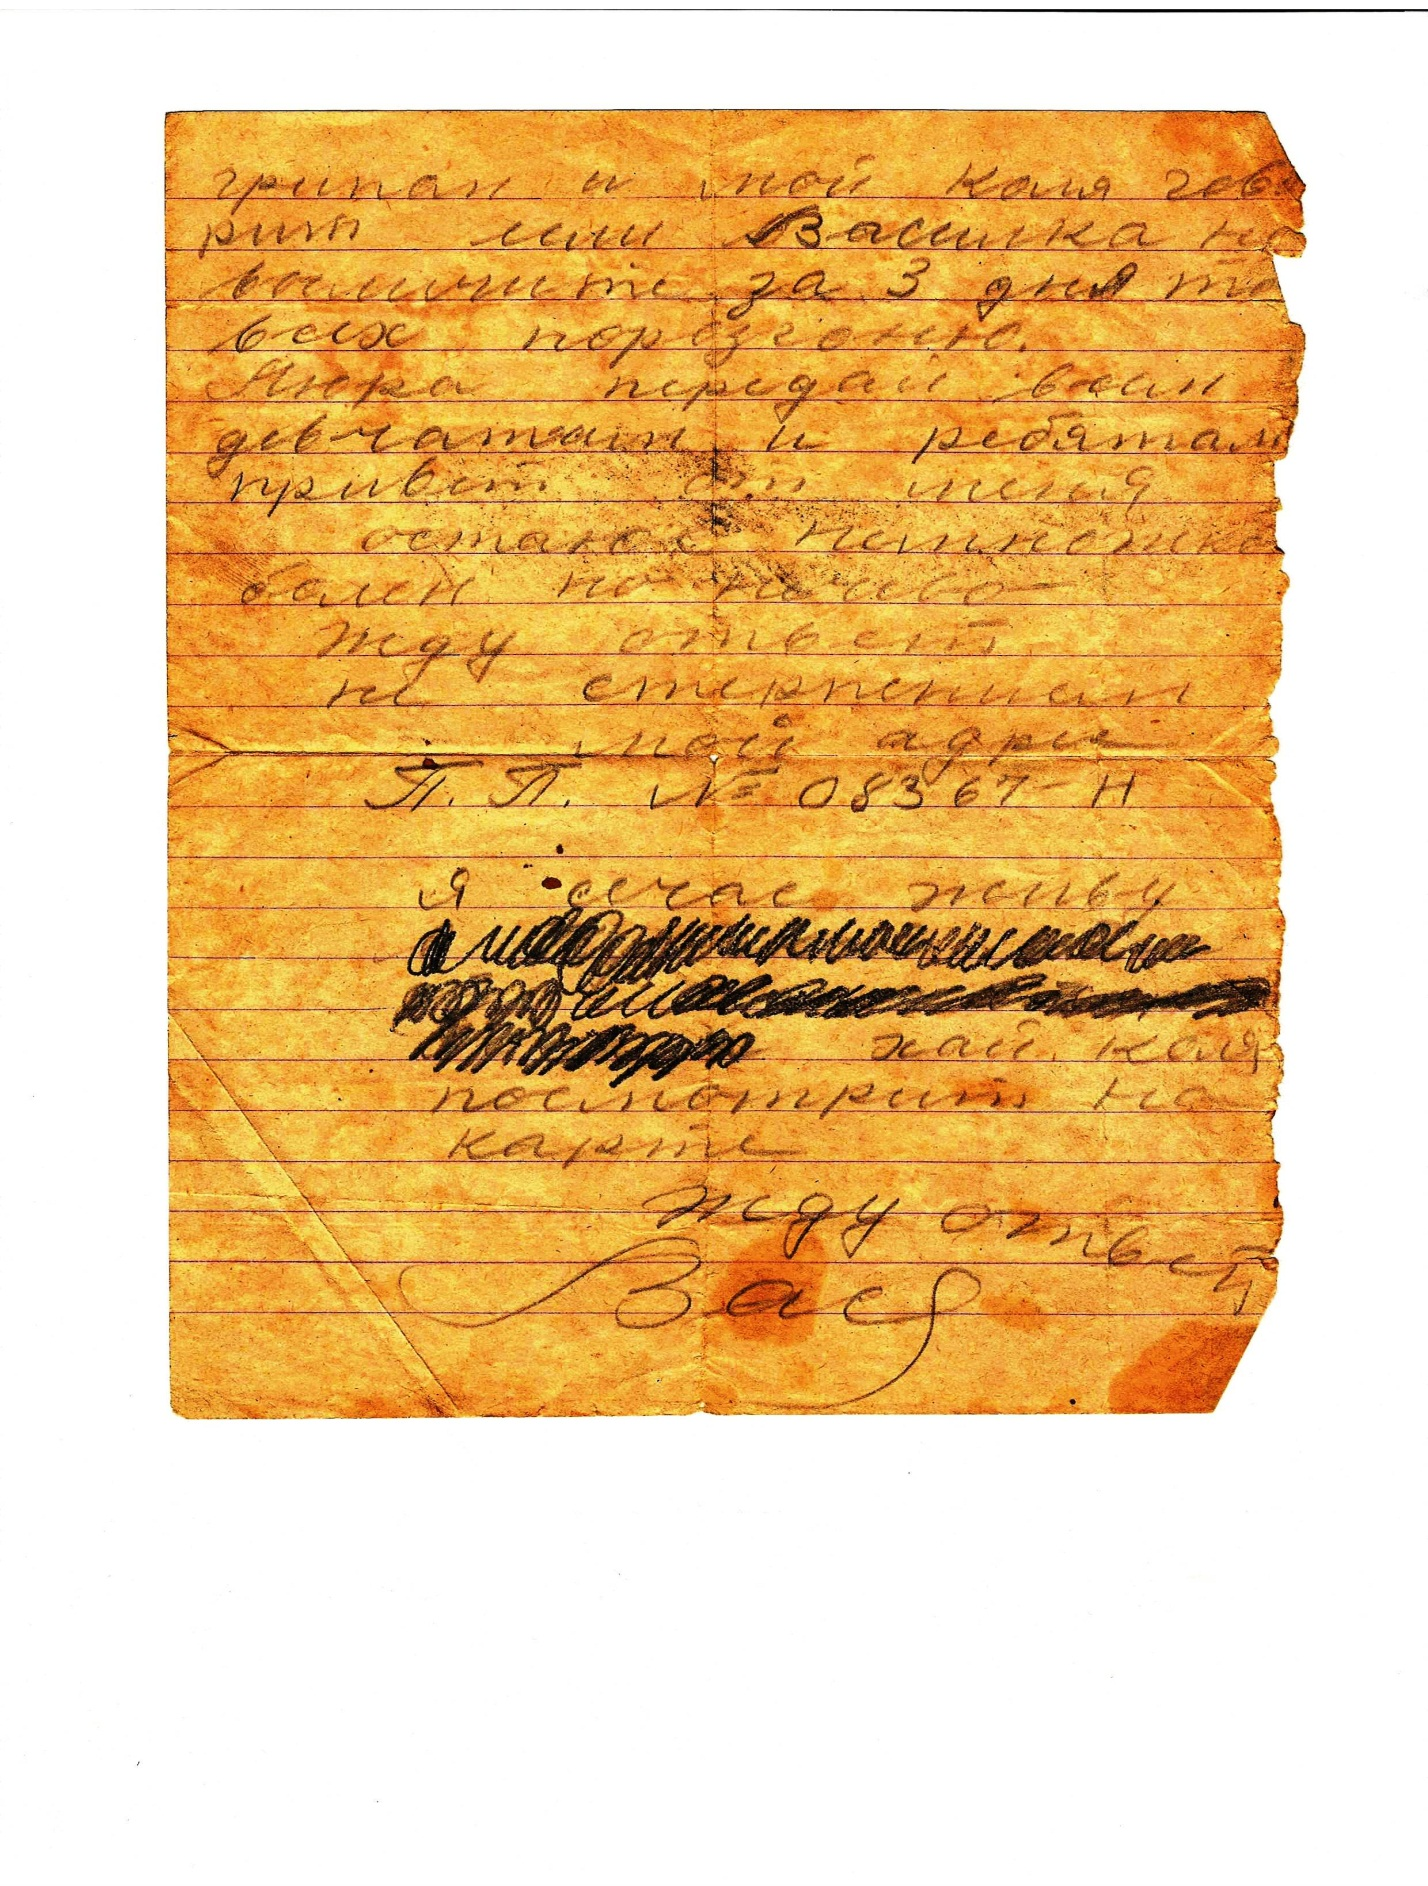 грипом и мой Коля гово
рит мни Васинка не
выличите за 3 дня то
всех поразгоню.
Нюра передай всем
девчатам и ребятам
привет от меня
остаюс немножко
болен но ничево
Жду ответ
не стерпением
мой адрес
П. П. № 08367-Н
Я сечас живу
хай Коля
посмотрит на
карте
Жду ответ
Вася